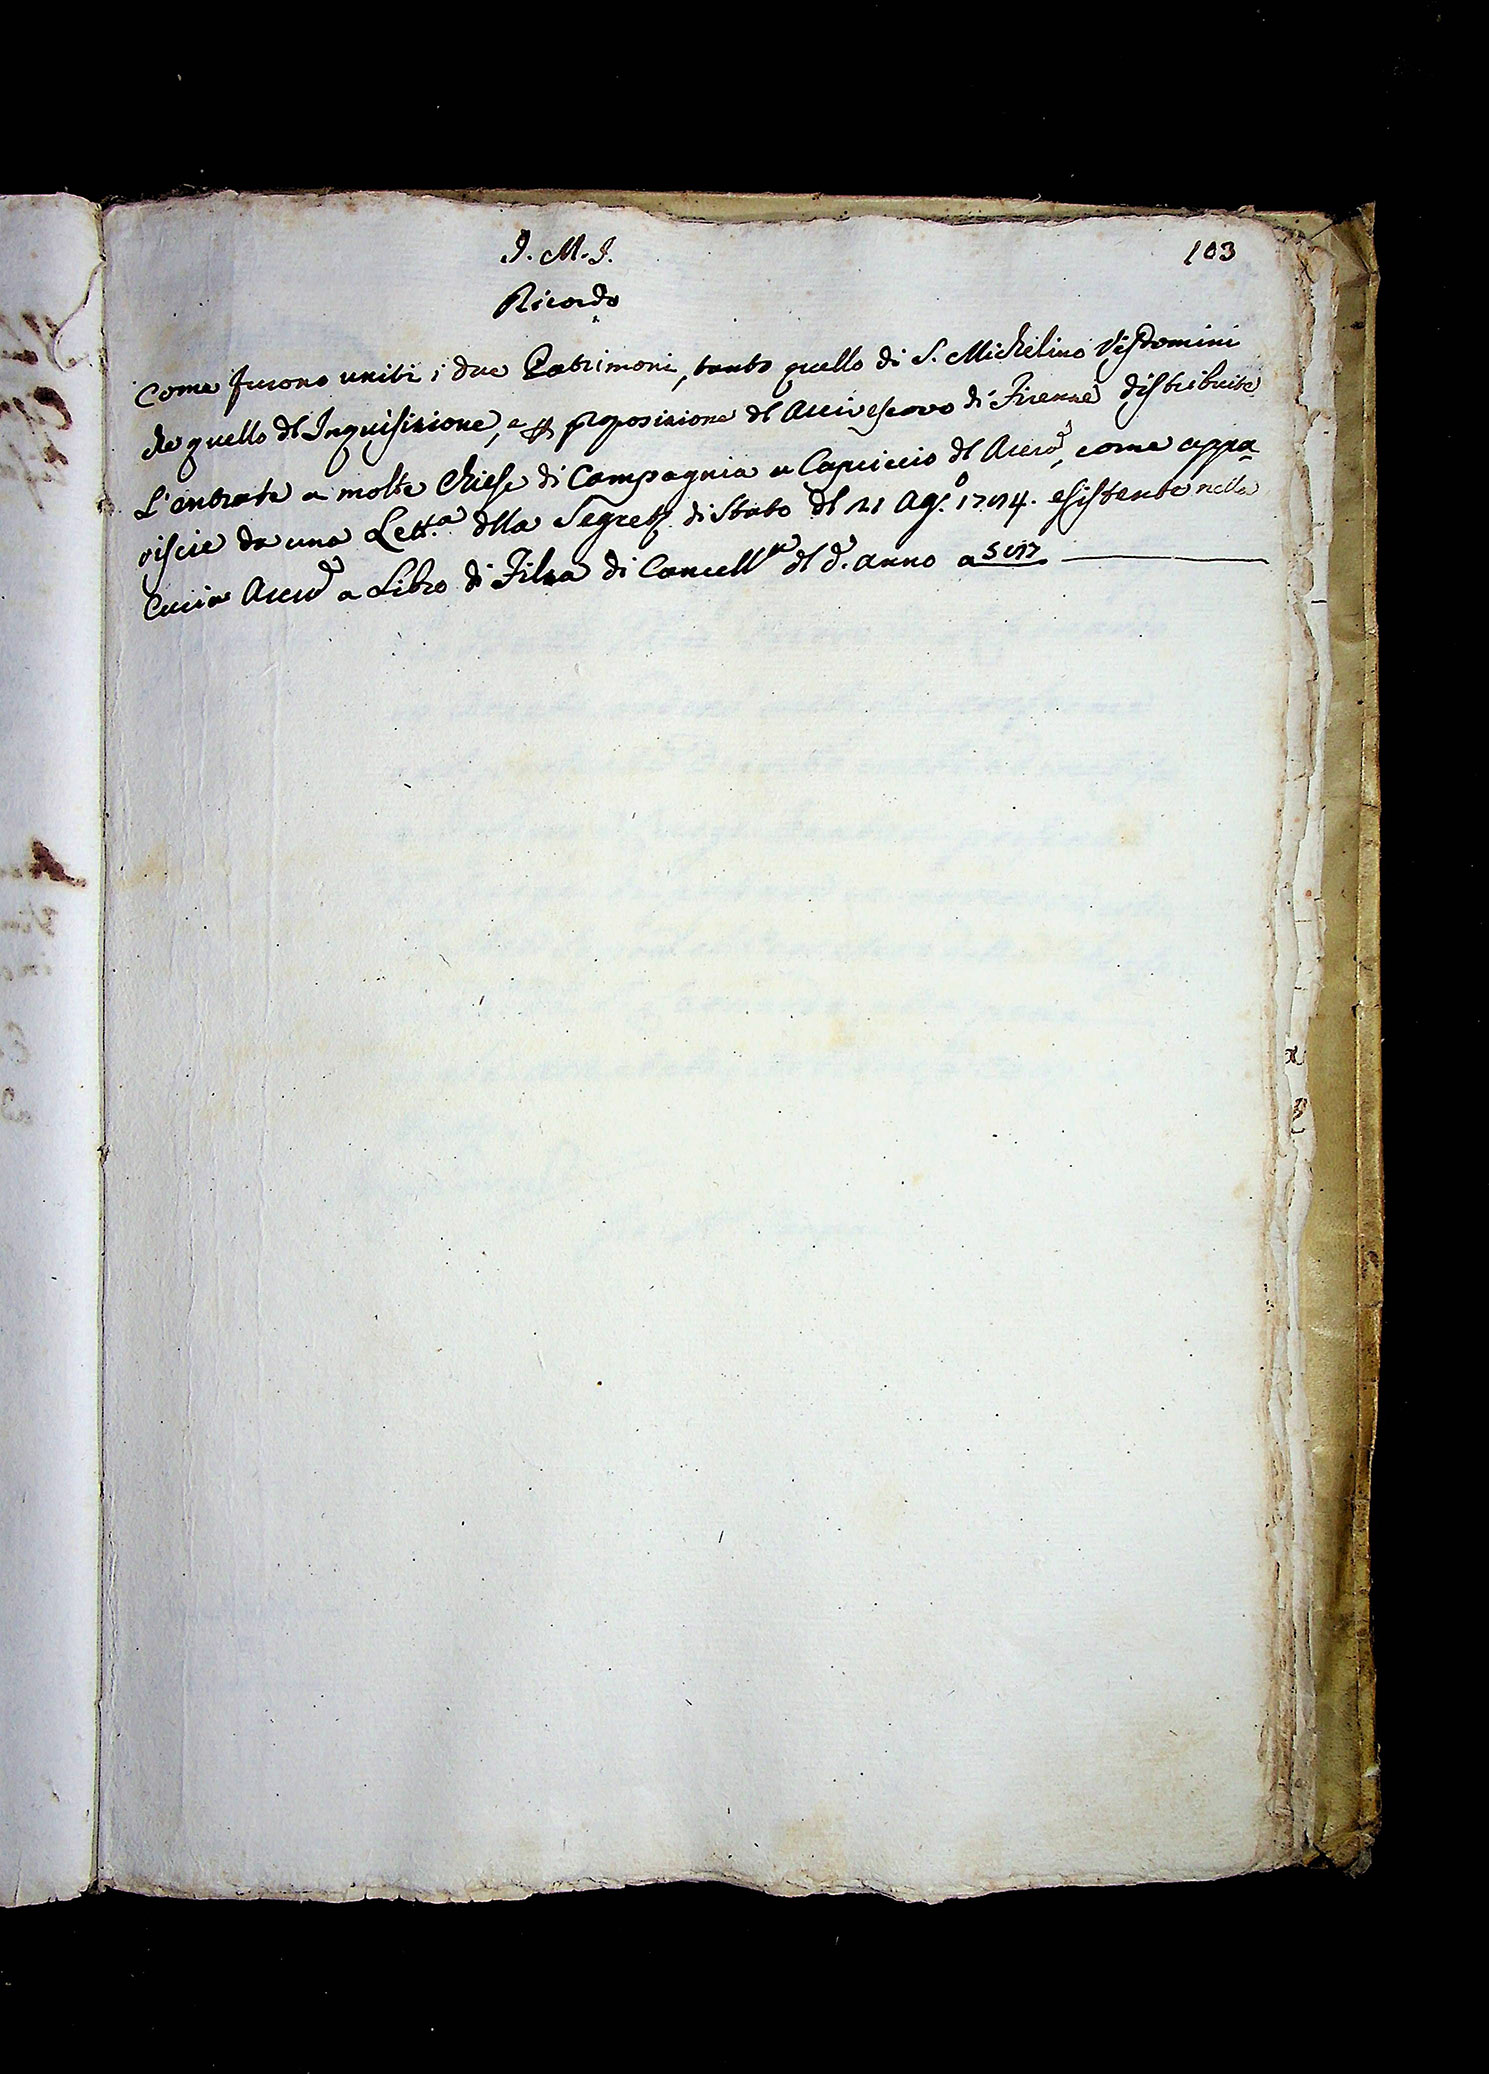 J. M. J.
103
Ricordo
Come furono uniti i due Patrimoni, tanto quello di S. Michelino Visdomini
che quello dl Inquisizione, e p proposizione dl Arcivescovo di Firenze distribuite
L'entrate a molte Chiese di Campagnia a Capriccio dl Arciv.o, come appa
riscie da una Lett.a dlla Segret. di Stato dl 21 Ag.o 1794. esistente nella
Curia Arciv.e a Libro di Filza di Cancell.a dl d.o anno a